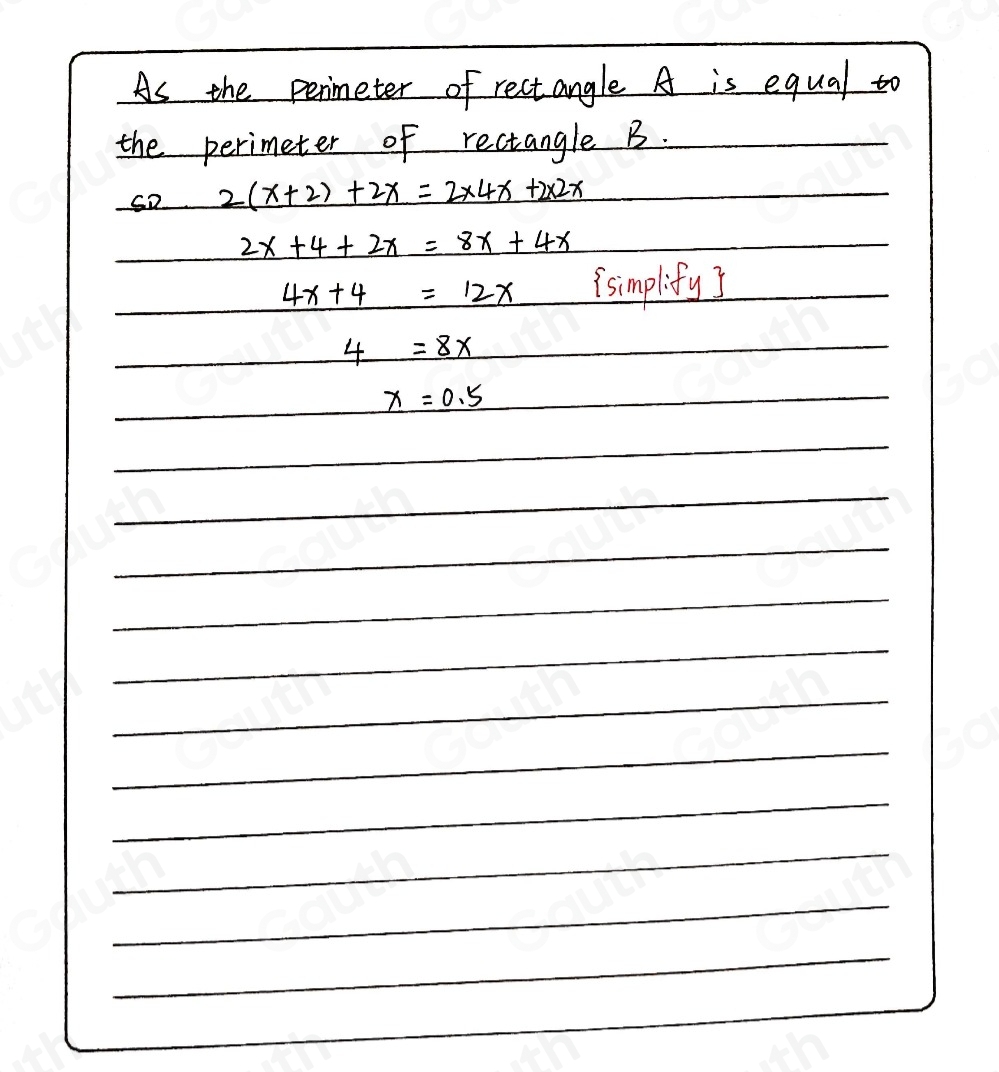 As the perimeter of rectangle A is equal to
the perimeter of rectangle B.
so. 2(x+2) +2x = 2×4x +2×2x
2x +4 + 2x = 8x + 4x
4x+4 = 12x {simplify}
4 = 8x
x = 0.5